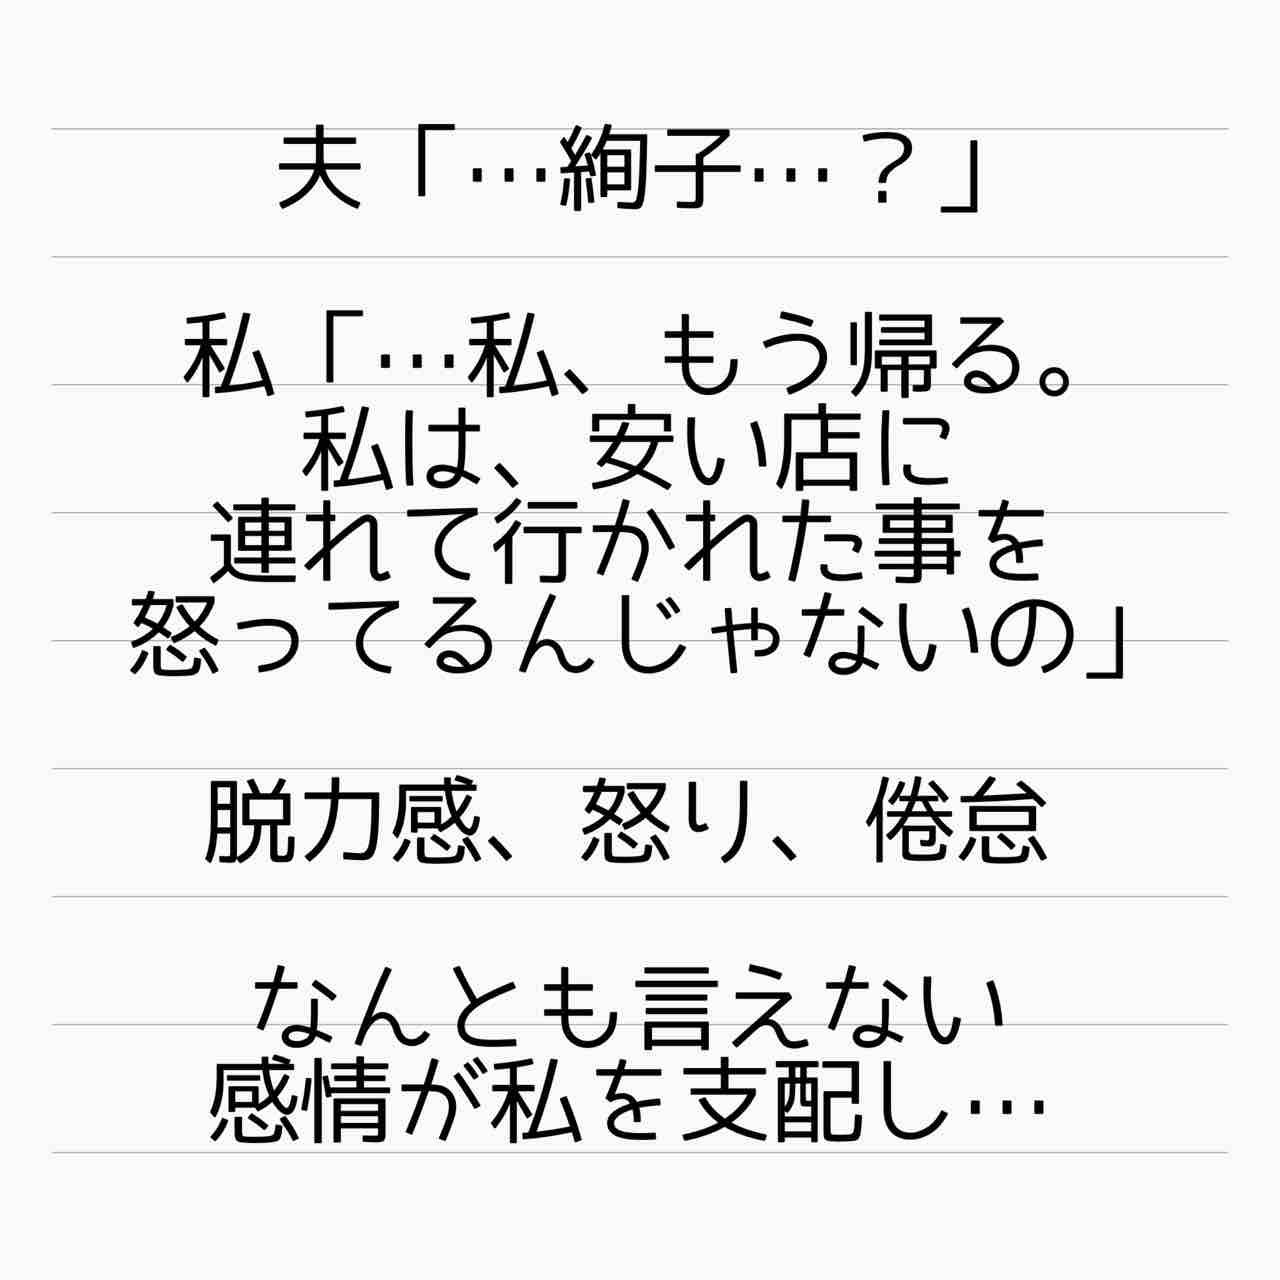 夫「…絢子…？」
私「…私、もう帰る。
私は、安い店に
連れて行かれた事を
怒ってるんじゃないの」
脱力感、怒り、倦怠
なんとも言えない
感情が私を支配し…